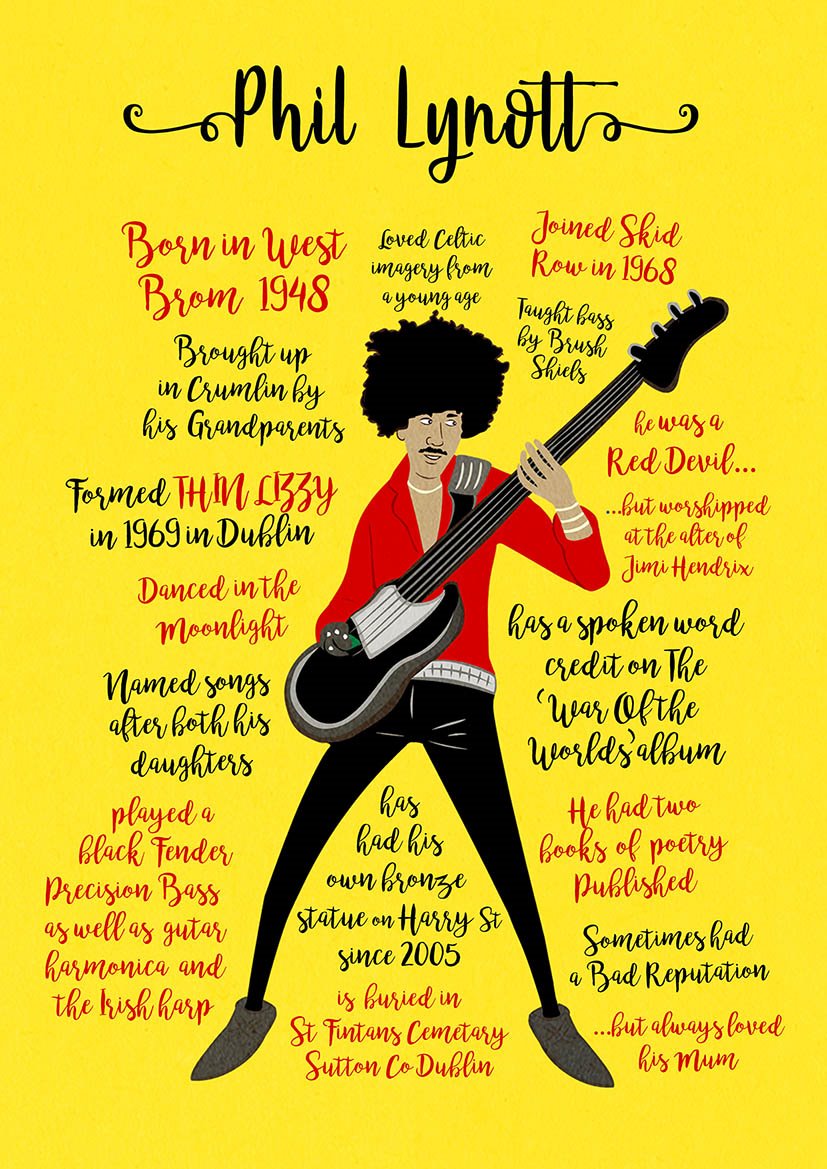 Phil Lynott
Born in West
Brom 1948
Loved Celtic
imagery from
a young age
Joined Skid
Row in 1968
Taught bass
by Brush
Shiels
Brought up
in Crumlin by
his Grandparents
he was a
Red Devil...
...but worshipped
at the alter of
Jimi Hendrix
Formed THIN LIZZY
in 1969 in Dublin
Danced in the
Moonlight
has a spoken word
credit on The
‘War Of the
Worlds’ album
Named songs
after both his
daughters
played a
black Fender
Precision Bass
as well as gutar
harmonica and
the Irish harp
has
had his
own bronze
statue on Harry St
since 2005
He had two
books of poetry
Published
Sometimes had
a Bad Reputation
is buried in
St Fintans Cemetary
Sutton Co Dublin
...but always loved
his Mum